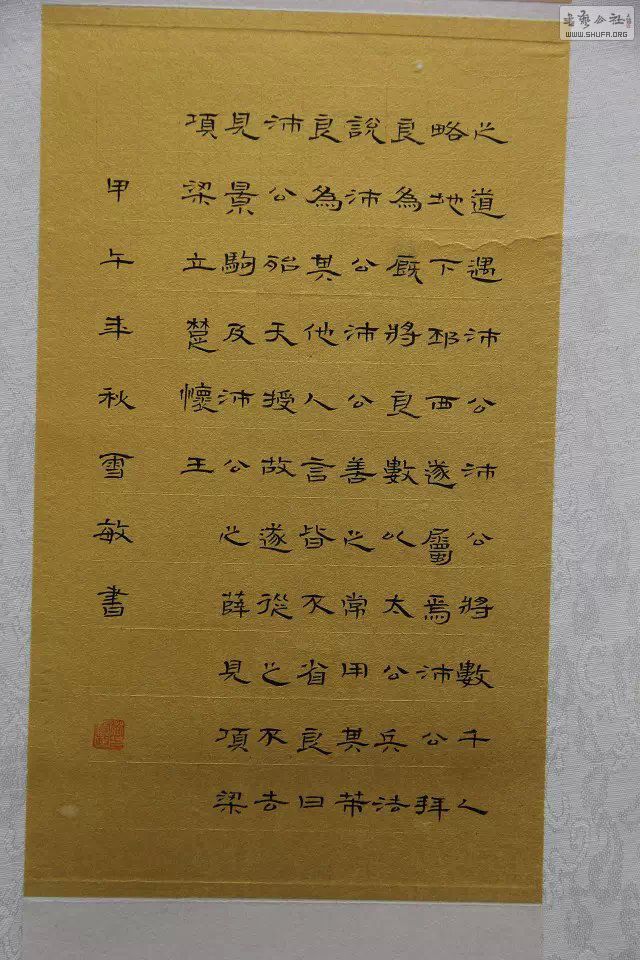 之道遇沛公沛公將數千人
略地下邳西遂屬焉沛公拜
良為厩將良數以太公兵法
說沛公沛公善之常用其策
良為其他人言皆不省良曰
沛公殆天授故遂從之不去
見景駒及沛公之薛見項梁
項梁立楚懷王
甲午年秋雪敏書
書藝公社
WWW.SHUFA.ORG